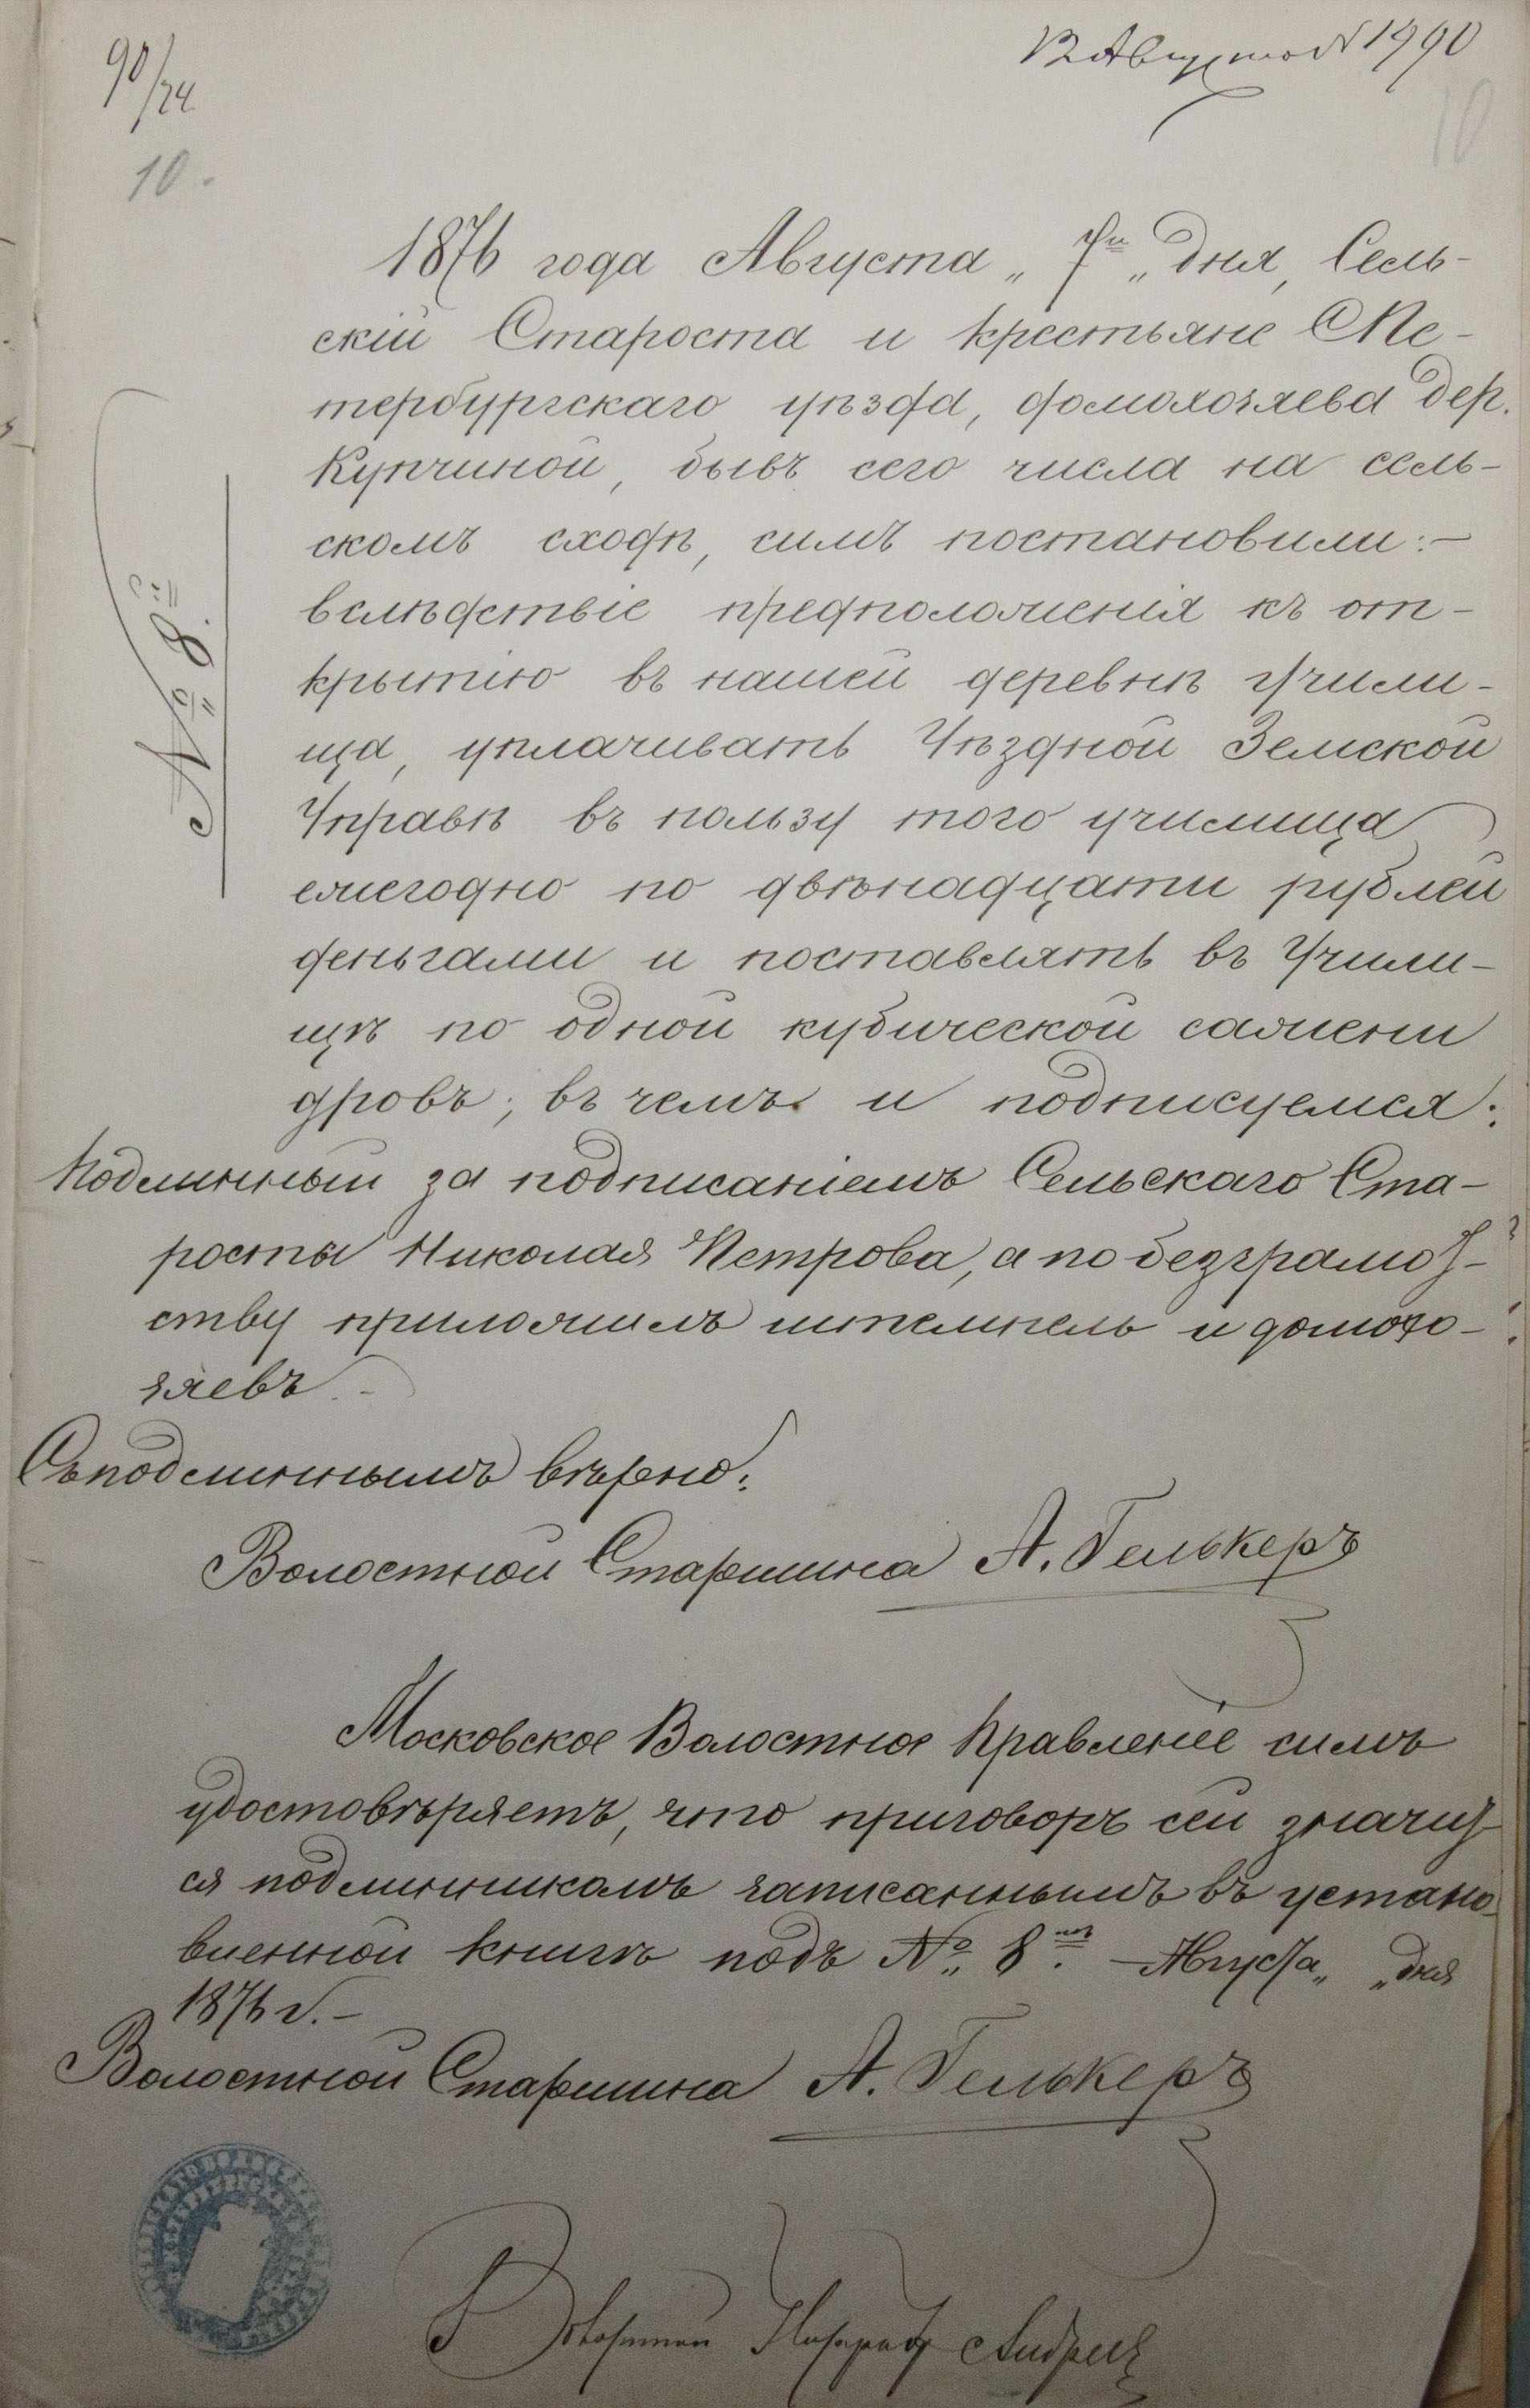 90/24
12 Августа № 1990
10.
10
№ 8й.
1876 года Августа „7го„ дня, Сель-
скій Староста и крестьяне СПе-
тербургскаго уѣзда, домохозяева дер.
Купчиной, бывъ сего числа на сель-
скомъ сходѣ, симъ постановили:-
вслѣдствіе предположенія къ от-
крытію въ нашей деревнѣ Учили-
ща, уплачивать Уѣздной Земской
Управѣ въ пользу того училища
ежегодно по двѣнадцати рублей
деньгами и поставлять въ Учили-
щѣ по одной кубической сажени
дровъ; въ чемъ и подписуемся:
Подлинный за подписаніемъ Сельскаго Ста-
росты Николая Петрова, а по безграмот-
ству приложилъ штемпель и домохо-
зяевъ.-
Съ подлиннымъ вѣрно:
Волостной Старшина А. Гелькеръ
Московское Волостное Правленіе симъ
удостовѣряетъ, что приговоръ сей значит-
ся подлинникомъ записаннымъ въ устано
вленной книгѣ подъ № 8мъ. Августа „ „ дня
1876 г.-
Волостной Старшина А. Гелькеръ